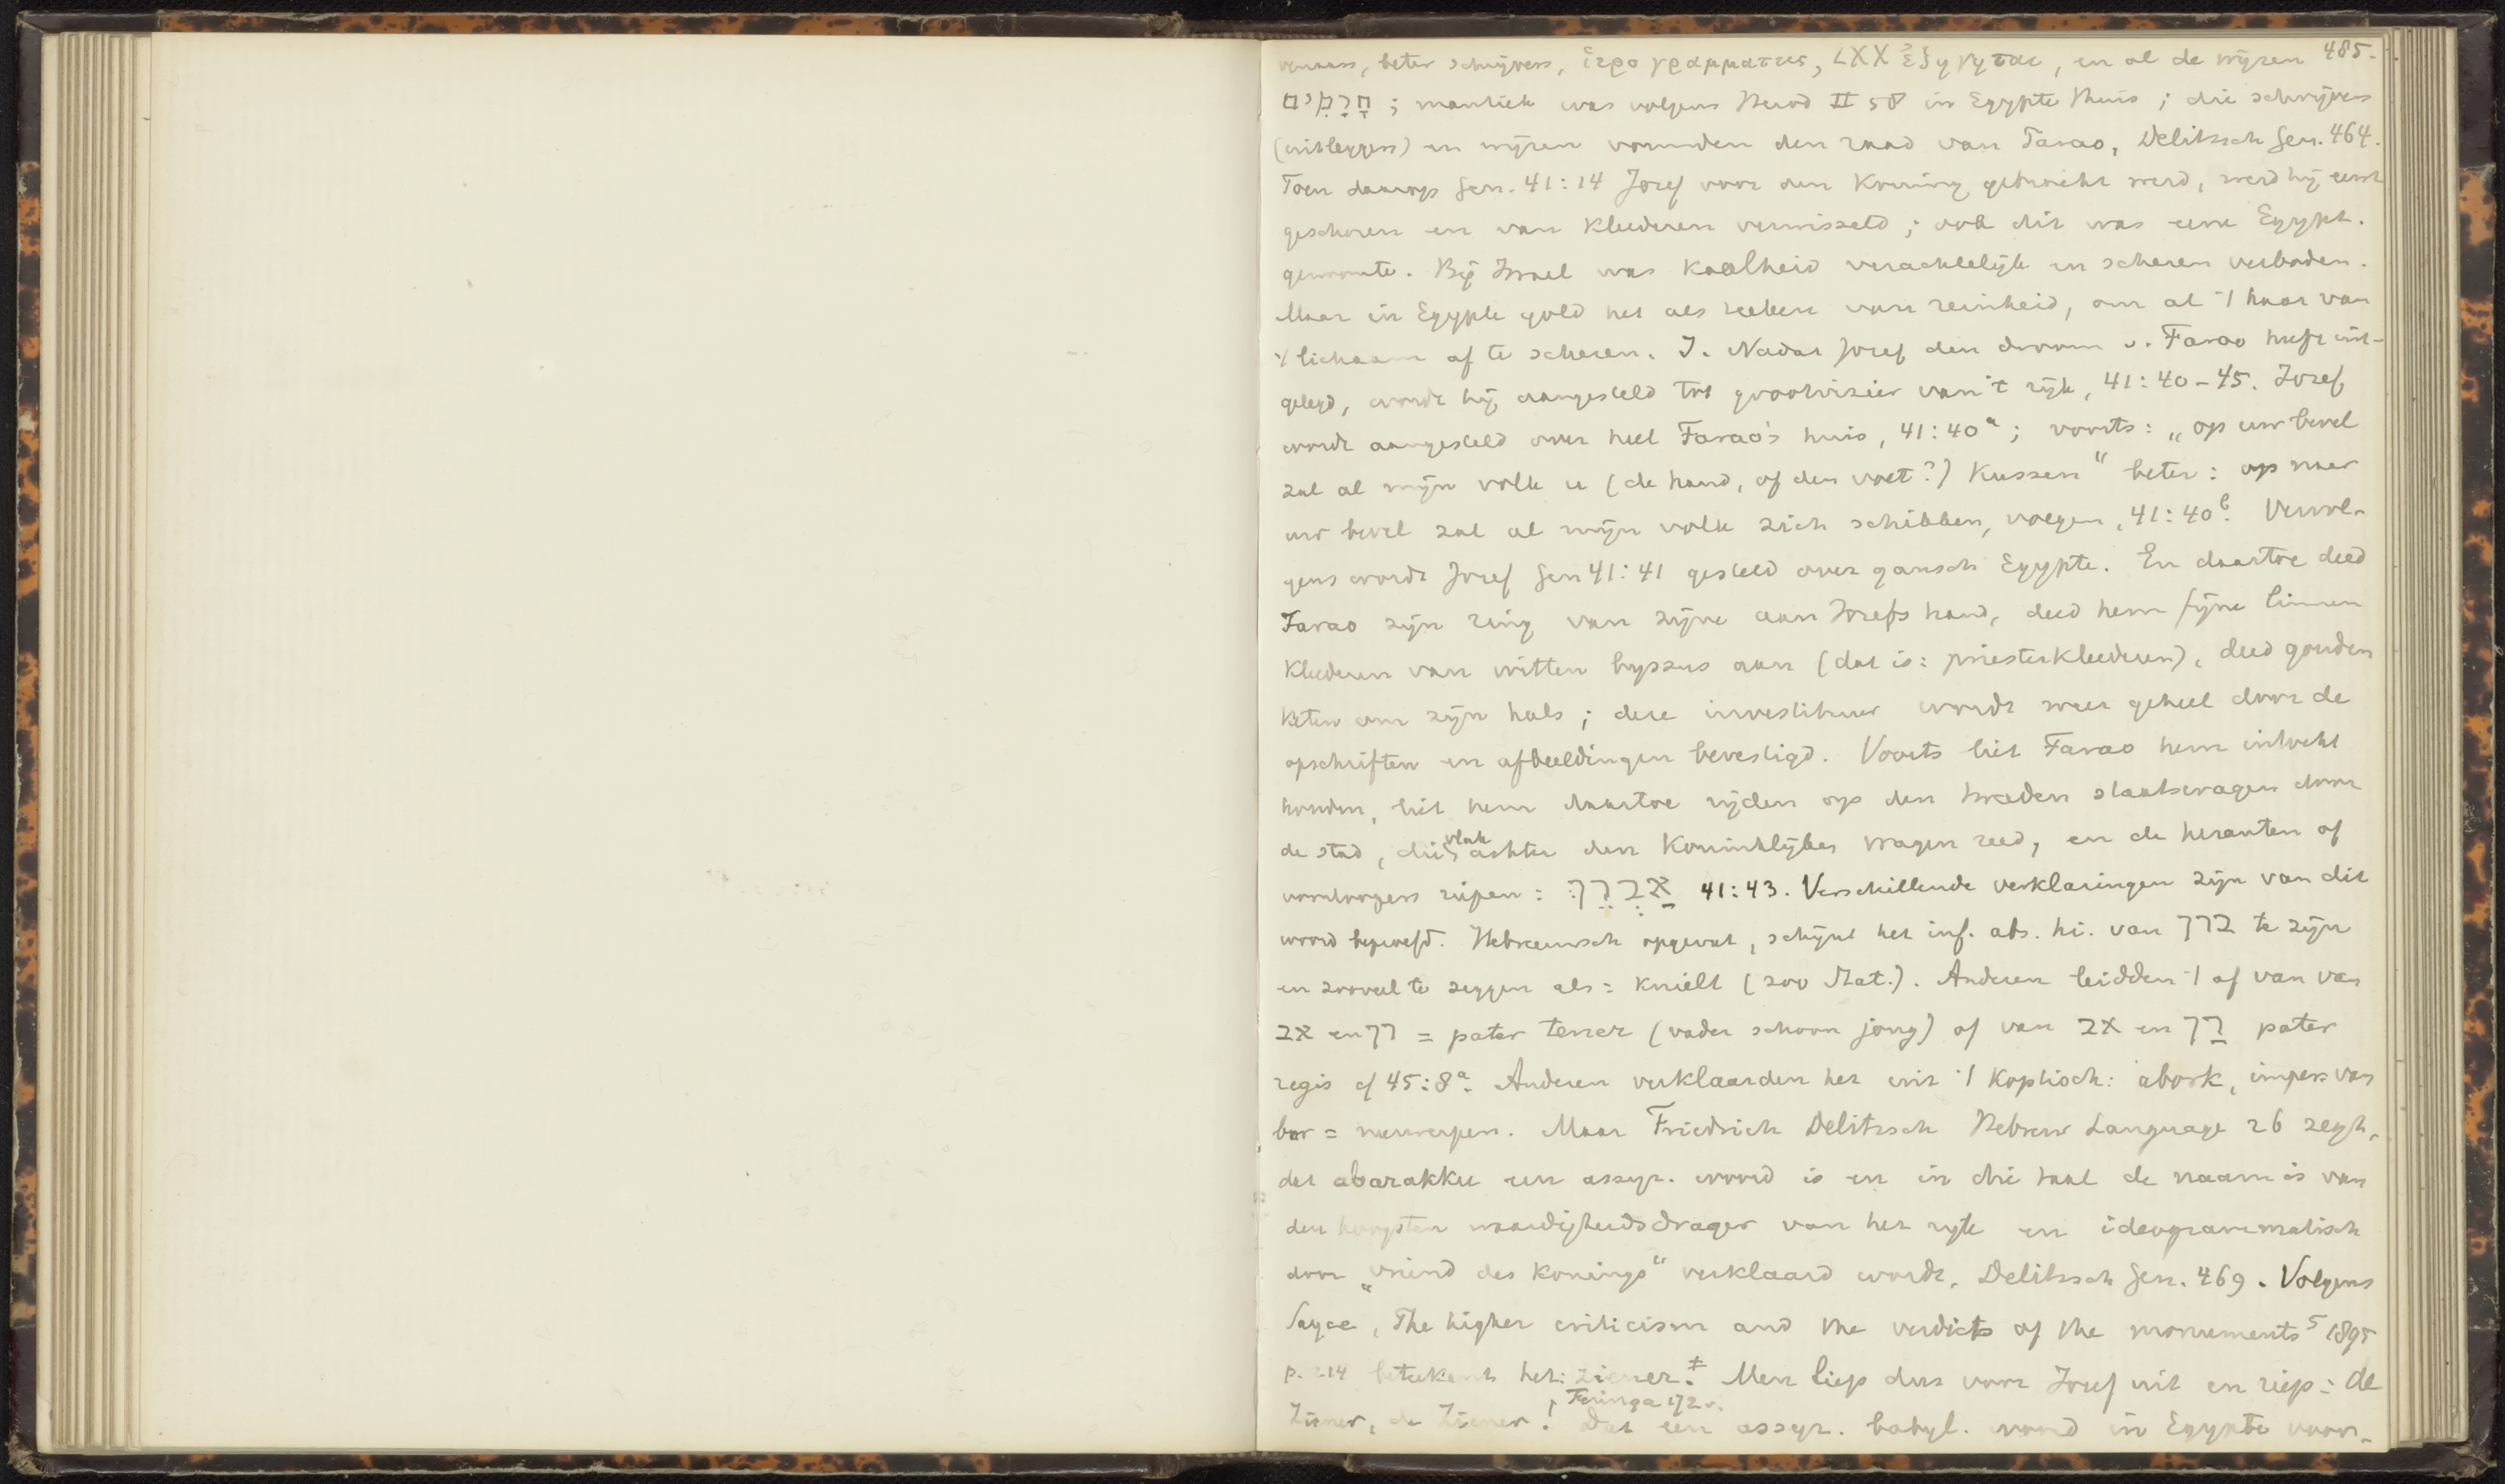 485.
beter schrijvers, ἱερογραμματεις, LXX ἐξηγηται, en al de wijzen
חַרְטֻמִּים ; mantiek was volgens Herod II 58 in Egypte thuis ; die schrijvers
(uitleggers) en wijzen vormden den raad van Farao, Delitzsch Gen. 464.
Toen daarop Gen. 41:14 Jozef voor den Koning gebracht werd, werd hij eerst
geschoren en van kleederen verwisseld ; ook dit was eene Egypt.
gewoonte. Bij Israel was kaalheid verachtelijk en scheren verboden.
Maar in Egypte gold het als teeken van reinheid, om al 't haar van
't lichaam af te scheren. J. Nadat Jozef den droom v. Farao heeft uit-
gelegd, wordt hij aangesteld tot grootvizier van 't rijk, 41:40-45. Jozef
wordt aangesteld over heel Farao's huis, 41:40a ; voorts : „op uw bevel
zal al mijn volk u (de hand, of den voet?) kussen“ beter : op naar
uw bevel zal al mijn volk zich schikken, voegen, 41:40b. Vervol-
gens wordt Jozef Gen 41:41 gesteld over gansch Egypte. En daartoe deed
Farao zijn ring van zijne aan Jozefs hand, deed hem fijne linnen
kleederen van witten byssus aan (dat is: priesterkleederen), deed gouden
keten om zijn hals ; deze investituur wordt weer geheel door de
opschriften en afbeeldingen bevestigd. Voorts liet Farao hem intocht
houden, liet hem daartoe rijden op den tweeden staatswagen door
de stad, die vlak achter den Koninklijken wagen reed, en de herauten of
voorloopers riepen : אַבְרֵךְ 41:43. Verschillende verklaringen zijn van dit
woord beproefd. Hebreeuwsch opgevat, schijnt het inf. abs. hi. van ברך te zijn
en zooveel te zeggen als : knielt (zoo Stat.). Anderen leidden 't af van van
אב en רך = pater tener (vader schoon jong) of van אב en רךְ pater
regis cf 45:8a. Anderen verklaarden het uit 't Koptisch: abork, imper. van
bor = neerwerpen. Maar Friedrich Delitzsch Hebrew Language 26 zegt,
dat abarakku een assyr. woord is en in die taal de naam is van
den hoogsten waardigheidsdrager van het rijk en ideogrammatisch
door „vriend des Konings“ verklaard wordt, Delitzsch Gen. 469. Volgens
Sayce, The higher criticism and the verdicts of the monuments 5 1895
p. 214 beteekent het: ziener.‡ Men liep dus voor Jozef uit en riep : de
Ziener, de Ziener! Dat een assyr. babyl. woord in Egypte voor-
Feringa 172 v.